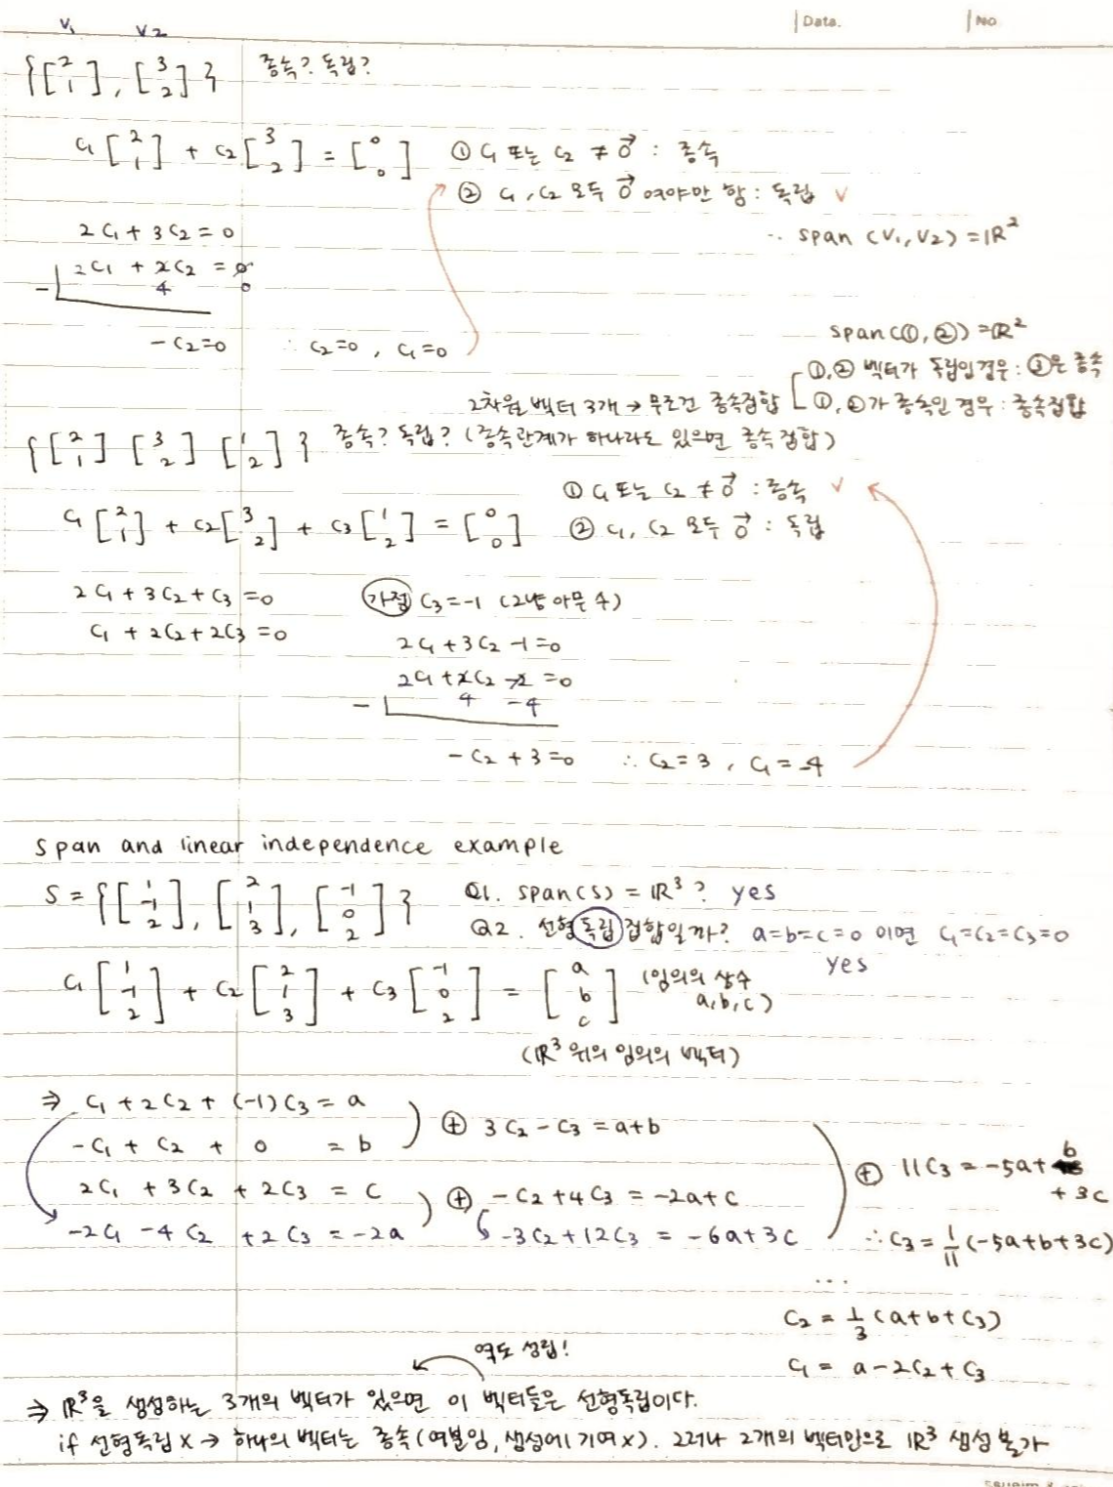 Date. No
v₁ v₂
{[2 1], [3 2]} 종속? 독립?
c₁[2 1] + c₂[3 2] = [0 0] ① c₁ 또는 c₂ ≠ 0⃗ : 종속
② c₁, c₂ 모두 0⃗ 여야만 함 : 독립 ✓
2c₁ + 3c₂ = 0 ∴ span (v₁, v₂) = ℝ²
2c₁ + 2c₂ = 0
- 4 0
-c₂=0 ∴ c₂=0, c₁=0
span(①, ②) = ℝ²
①,② 벡터가 독립인경우 : ③은 종속
2차원 벡터 3개 → 무조건 종속집합 ①, ②가 종속인 경우 : 종속집합
{[2 1] [3 2] [1 2]} 종속? 독립? (종속관계가 하나라도 있으면 종속집합)
① c₁ 또는 c₂ ≠ 0⃗ : 종속 ✓
c₁[2 1] + c₂[3 2] + c₃[1 2] = [0 0] ② c₁, c₂ 모두 0⃗ : 독립
2c₁ + 3c₂ + c₃ = 0 가정 c₃=-1 (그냥 아무 수)
c₁ + 2c₂ + 2c₃ = 0
2c₁ + 3c₂ -1 = 0
2c₁ + 2c₂ -2 = 0
- 4 -4
-c₂ + 3 = 0 ∴ c₂ = 3, c₁ = -4
span and linear independence example
S = {[1 -1 2], [2 1 3], [-1 0 2]} Q1. span(S) = ℝ³? yes
Q2. 선형독립집합일까? a=b=c=0 이면 c₁=c₂=c₃=0
yes
c₁[1 -1 2] + c₂[2 1 3] + c₃[-1 0 2] = [a b c] (임의의 상수
a,b,c)
(ℝ³ 위의 임의의 벡터)
⇒ c₁ + 2c₂ + (-1)c₃ = a
-c₁ + c₂ + 0 = b ⊕ 3c₂ - c₃ = a+b
2c₁ + 3c₂ + 2c₃ = c ⊕ -c₂ + 4c₃ = -2a+c
-2c₁ - 4c₂ + 2c₃ = -2a -3c₂ + 12c₃ = -6a+3c
⊕ 11c₃ = -5a + b
+ 3c
∴ c₃ = 1/11 (-5a+b+3c)
...
c₂ = 1/3 (a+b+c₃)
c₁ = a - 2c₂ + c₃
역도 성립!
⇒ ℝ³을 생성하는 3개의 벡터가 있으면 이 벡터들은 선형독립이다.
if 선형독립 X → 하나의 벡터는 종속(여분임, 생성에 기여 X). 그러나 2개의 벡터만으로 ℝ³ 생성 불가